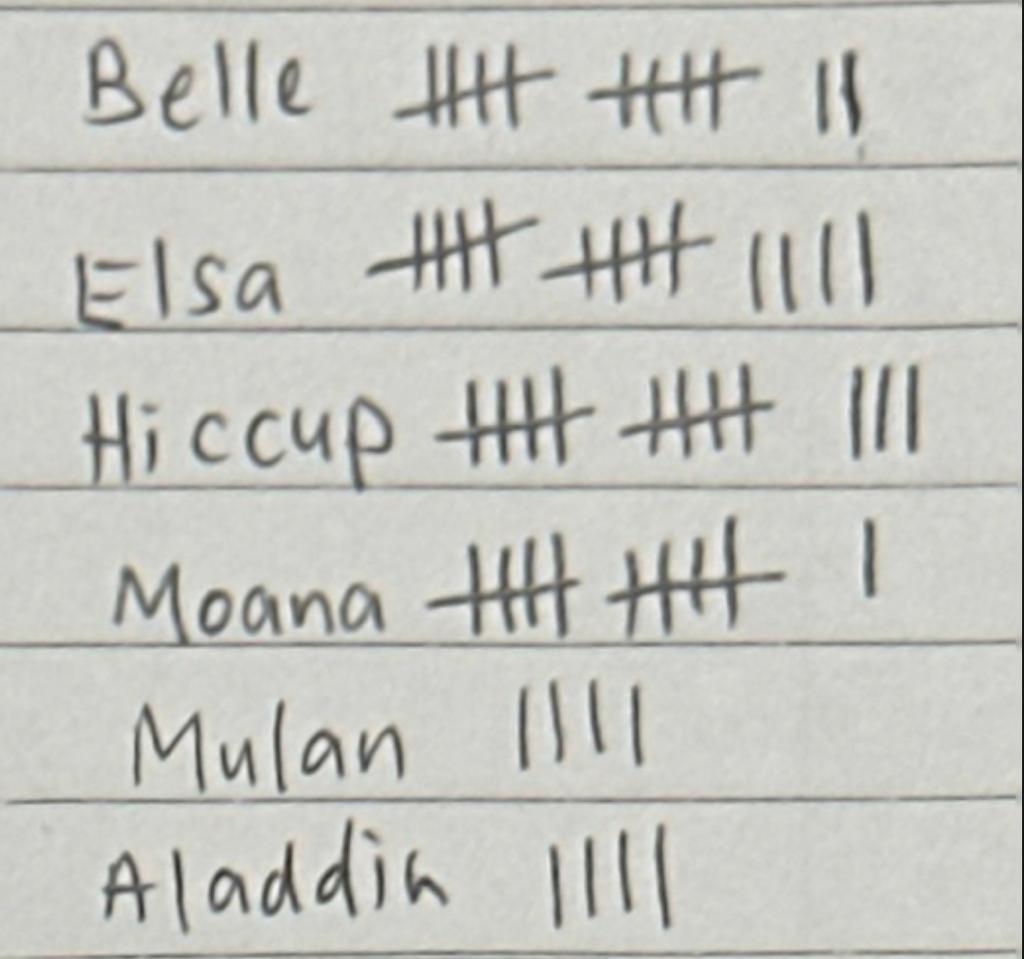 Belle 𝍸 𝍸 ||
Elsa 𝍸 𝍸 ||||
Hiccup 𝍸 𝍸 |||
Moana 𝍸 𝍸 |
Mulan ||||
Aladdin ||||